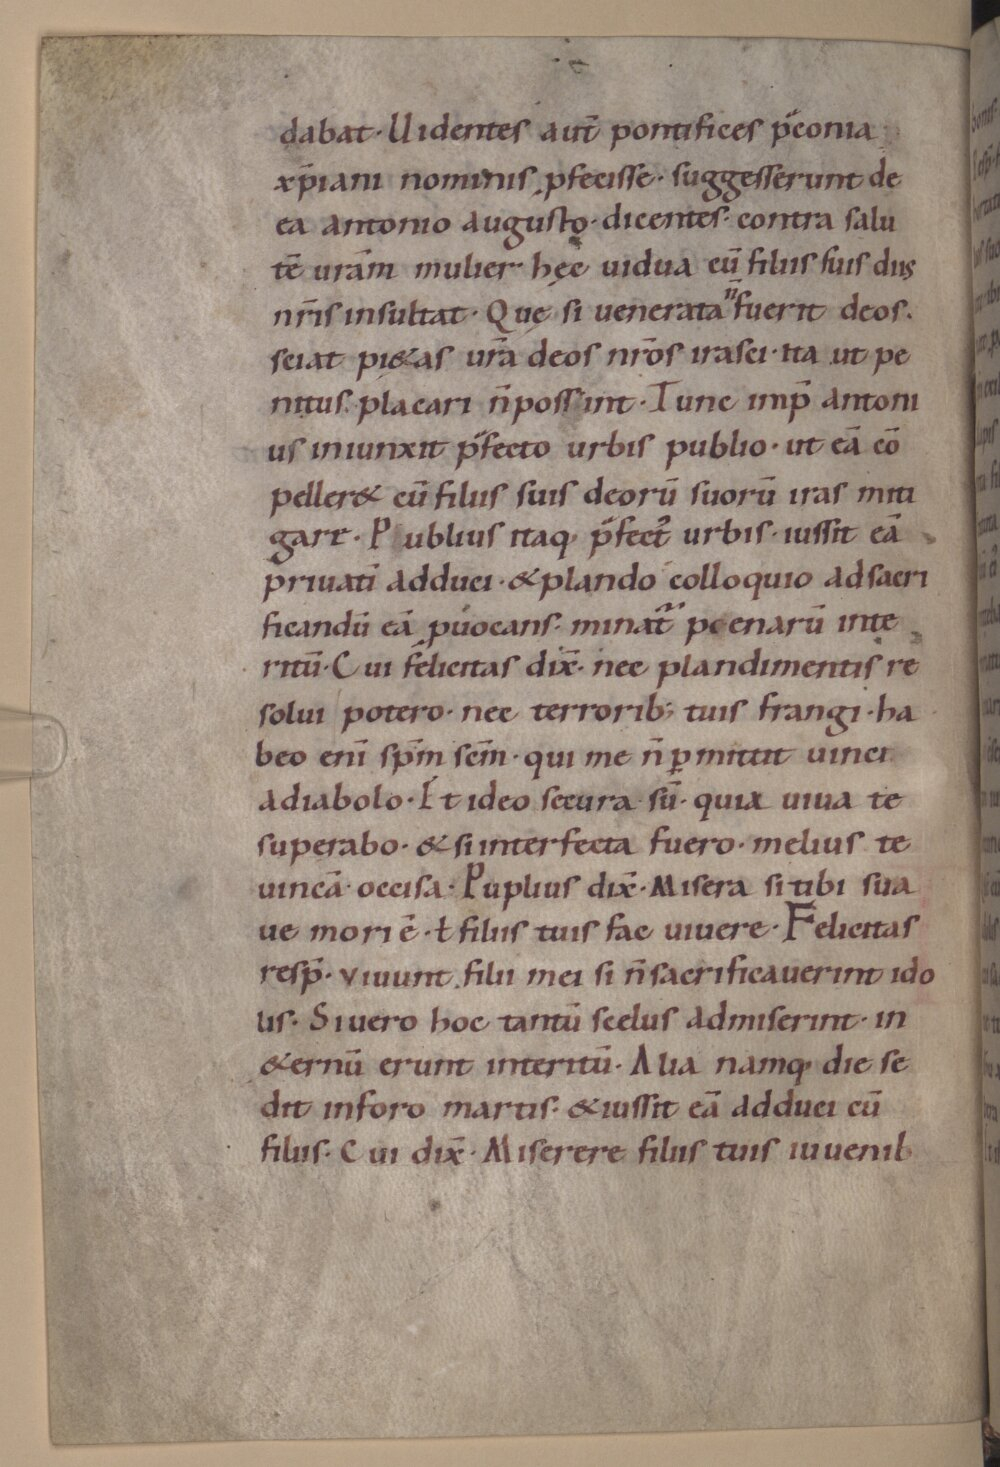 dabat· Uidentes aut̄ pontifices p̄conia
xp̄iani nominis p̱fecisse· suggesserunt de
ea antonio augusto· dicentes· contra salu
tē ur̄am mulier hęc uidua cū filiis suis diis
nr̄is insultat· Quę si uenerata n̄ fuerit deos·
sciat pi&as ur̄a deos nr̄os irasci· ita ut pe
nitus placari n̄ possint· Tunc imp̄ antoni
us iniunxit p̄fecto urbis publio· ut eā cō
peller& cū filiis suis deorū suorū iras miti
gare· Publius itaq· p̄fect᷒ urbis· iussit eā
priuati̅ adduci· & blando colloquio ad sacri
ficandū eā puocans· minat̄ poenarū inte
ritū· Cui felicitas dix̄· nec blandimentis re
solui potero· nec terrorib; tuis frangi· ha
beo eni̅ sp̄m sc̄m· qui me n̄ ꝑmittit uinci
a diabolo· Et ideo secura sū· quia uiua te
superabo· & si interfecta fuero· melius te
uincā occisa· Puplius dix̄· Misera si tibi sua
ue mori ē· ł filiis tuis fac uiuere· Felicitas
resp̄· viuunt filii mei si n̄ sacrificauerint ido
lis· Si uero hoc tantū scelus admiserint· in
&ernū erunt interitū· Alia namq· die se
dit in foro martis· & iussit eā adduci cū
filiis· Cui dix̄· Miserere filiis tuis iuuenib